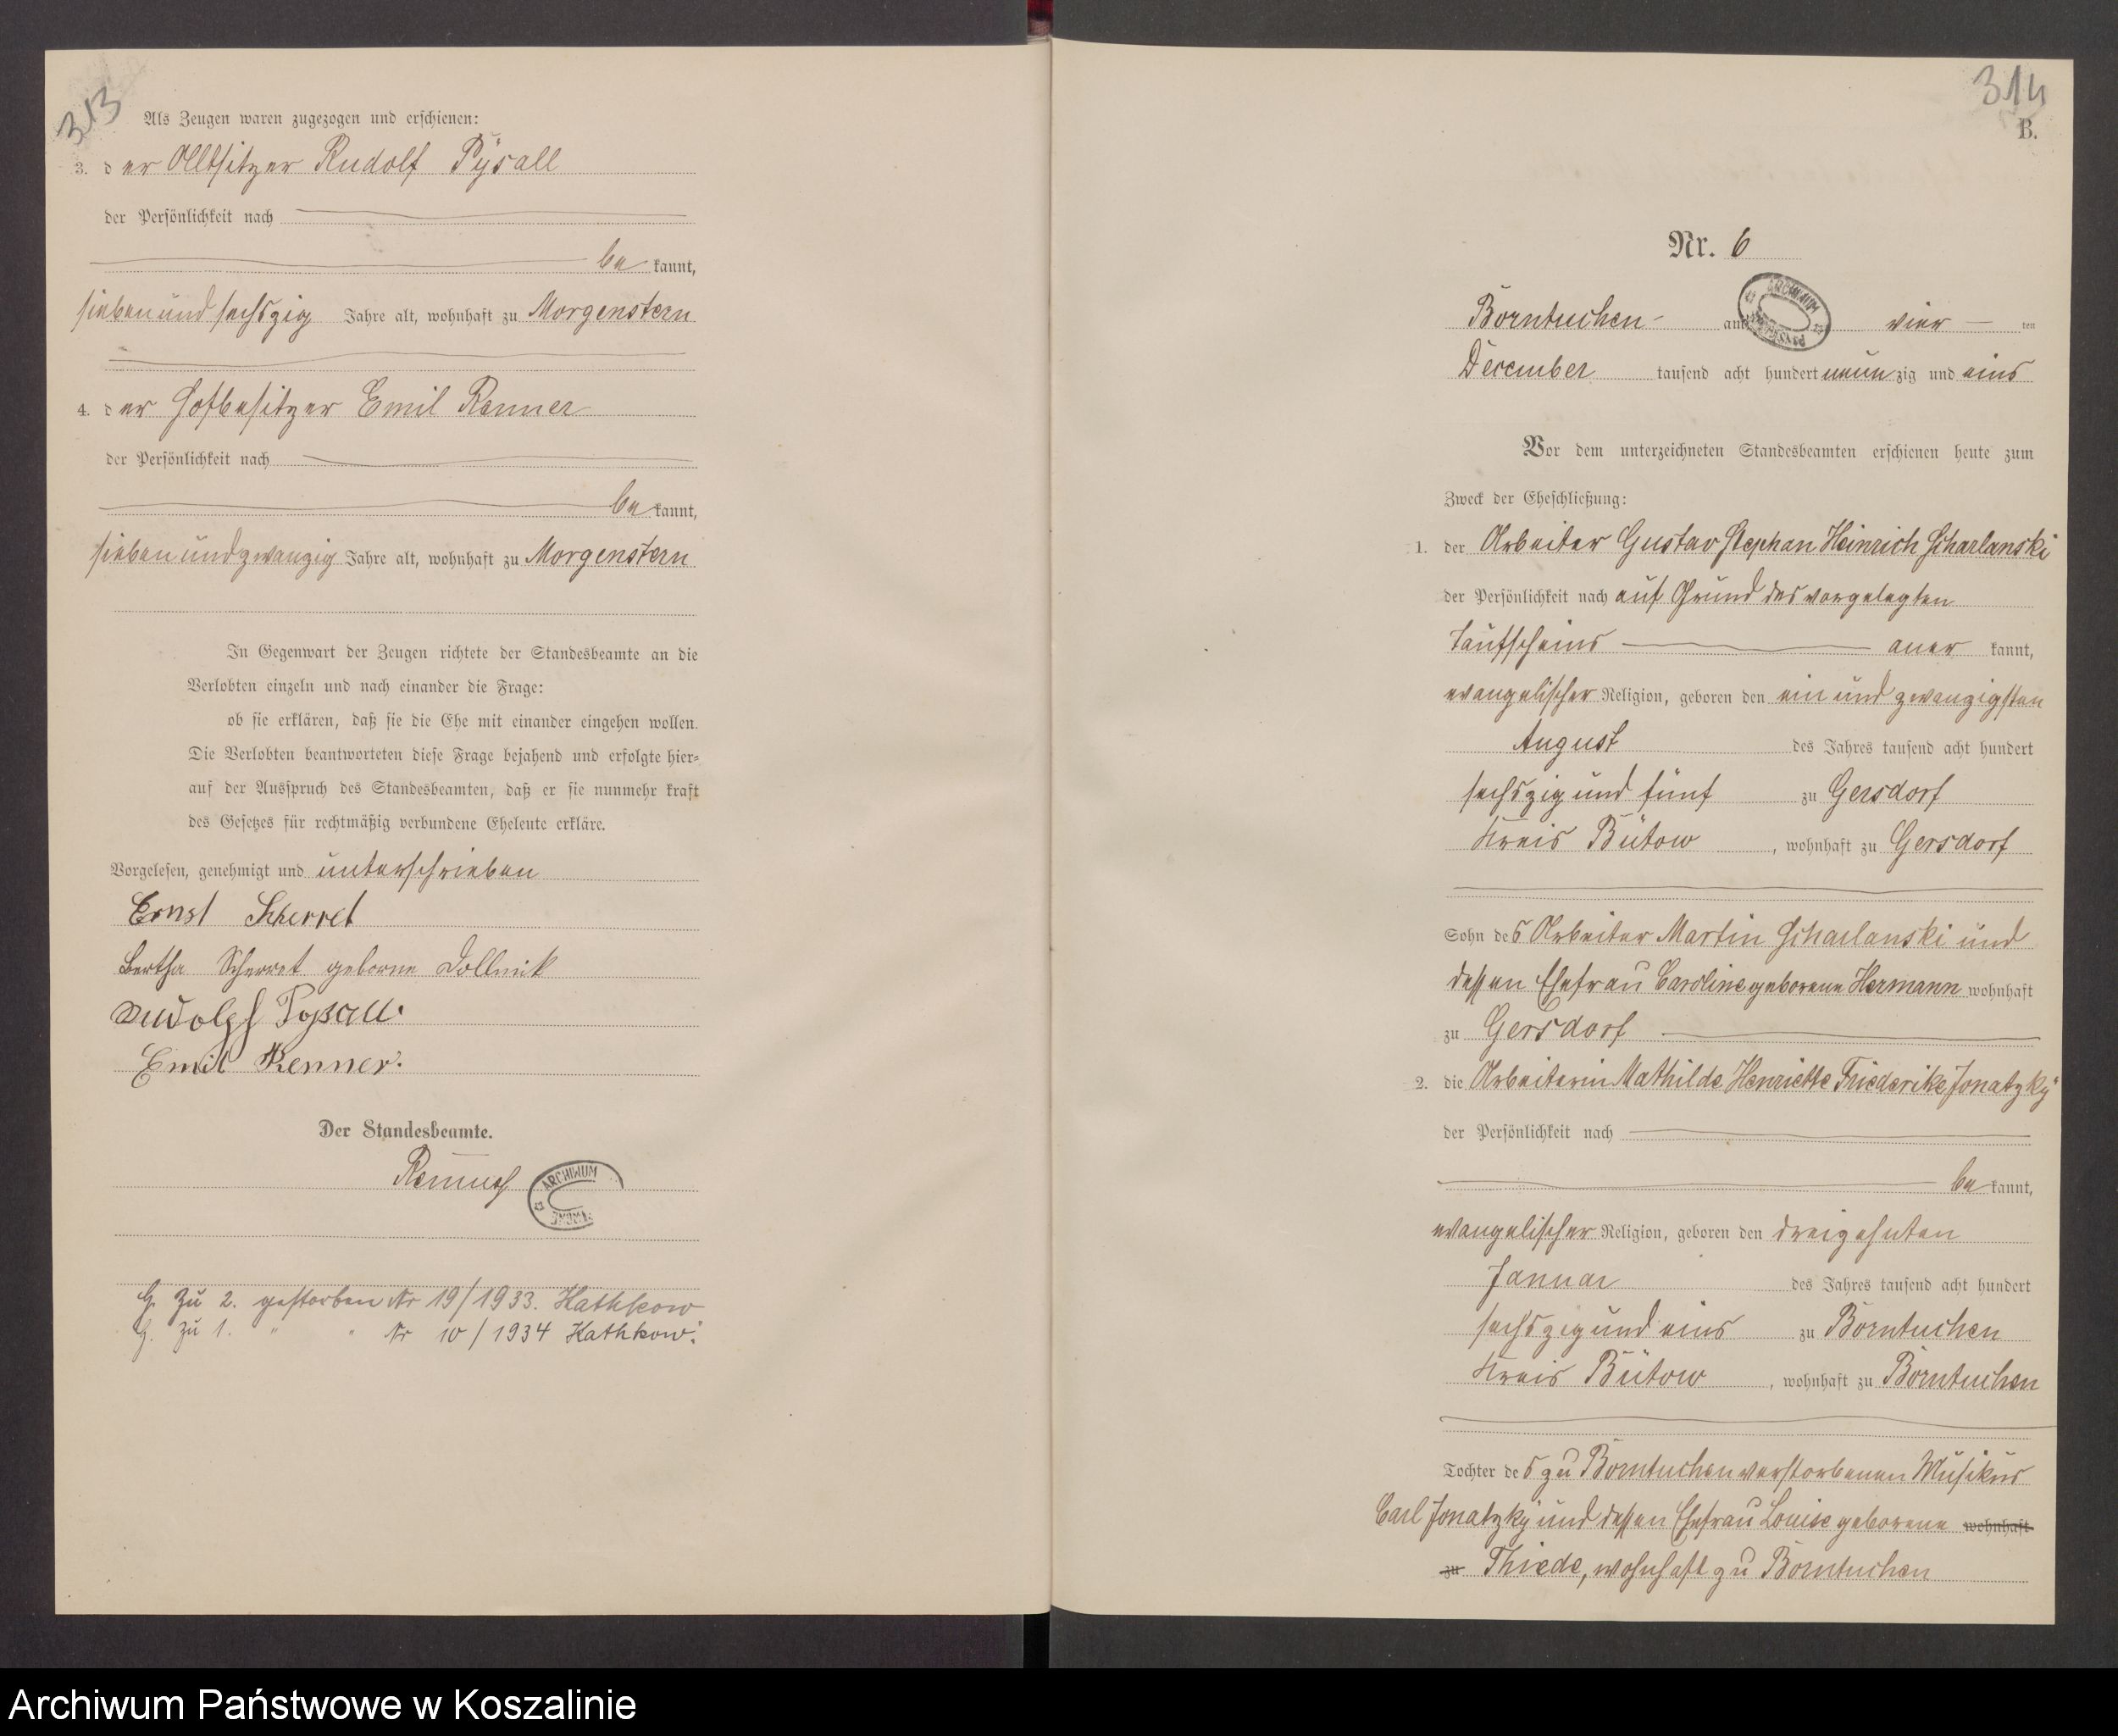 313
Als Zeugen waren zugezogen und erschienen:
3. der Altsitzer Rudolf Pÿsall
der Persönlichkeit nach
be kannt,
siebenundsechszig Jahre alt, wohnhaft zu Morgenstern
4. der Hofbesitzer Emil Renner
der Persönlichkeit nach
be kannt,
siebenundzwanzig Jahre alt, wohnhaft zu Morgenstern
In Gegenwart der Zeugen richtete der Standesbeamte an die
Verlobten einzeln und nach einander die Frage:
ob sie erklären, daß sie die Ehe mit einander eingehen wollen.
Die Verlobten beantworteten diese Frage bejahend und erfolgte hier-
auf der Ausspruch des Standesbeamten, daß er sie nunmehr kraft
des Gesetzes für rechtmäßig verbundene Eheleute erkläre.
Vorgelesen, genehmigt und unterschrieben
Ernst Scherret
Bertha Scherret geborne Dollnik
Rudolph Pysall.
Emil Renner.
Der Standesbeamte.
ARCHIWUM
G. zu 2. gestorben Nr 19/1933. Kathkow
G. zu 1. " " Nr 10/1934 Kathkow.
314
B.
Nr. 6
Borntuchen am vier ten
December tausend acht hundert neun zig und eins
ARCHIWUM
Vor dem unterzeichneten Standesbeamten erschienen heute zum
Zweck der Eheschließung:
1. der Arbeiter Gustav Stephan Heinrich Scharlanski
der Persönlichkeit nach auf Grund des vorgelegten
Taufscheins aner kannt,
evangelischer Religion, geboren den ein und zwanzigsten
August des Jahres tausend acht hundert
sechszig und fünf zu Gersdorf
Kreis Bütow, wohnhaft zu Gersdorf
Sohn des Arbeiter Martin Scharlanski und
dessen Ehefrau Caroline geborene Hermann wohnhaft
zu Gersdorf
2. die Arbeiterin Mathilde Henriette Friederike Jonatzkÿ
der Persönlichkeit nach
be kannt,
evangelischer Religion, geboren den dreizehnten
Januar des Jahres tausend acht hundert
sechszig und eins zu Borntuchen
Kreis Bütow, wohnhaft zu Borntuchen
Tochter des zu Borntuchen verstorbenen Musikus
Carl Jonatzkÿ und dessen Ehefrau Louise geborene wohnhaft
zu Thiede, wohnhaft zu Borntuchen
Archiwum Państwowe w Koszalinie